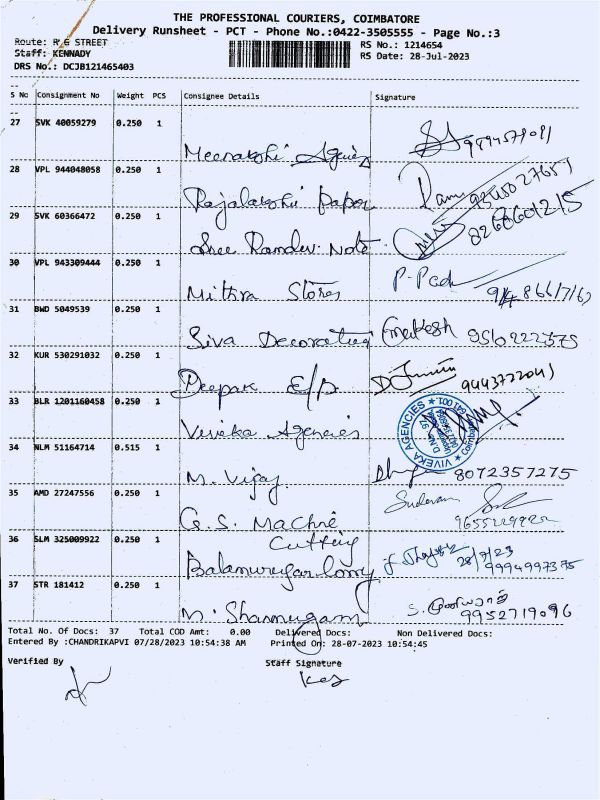 THE PROFESSIONAL COURIERS, COIMBATORE
Delivery Runsheet - PCT - Phone No.:0422-3505555 - Page No.:3
Route: R G STREET
RS No.: 1214654
Staff: KENNADY
RS Date: 28-Jul-2023
DRS No.: DCJB121465403
S No Consignment No Weight PCS Consignee Details Signature
27 SVK 40059279 0.250 1
Meenakshi Agencies
28 VPL 944048058 0.250 1
Rajalakshi Paper
29 SVK 60366472 0.250 1
Sree Ramdev Note
8268601215
30 VPL 943309444 0.250 1
Mithra Stores
31 BWD 5049539 0.250 1
Siva Decorating 9560222575
32 KUR 530291032 0.250 1
Deepak E/p 9443722041
33 BLR 1201160458 0.250 1
Viveka Agencies
VIVEKA AGENCIES
34 NLM 51164714 0.515 1
M. Vijay 8072357275
35 AMD 27247556 0.250 1
G.S. Machne
Cutting
36 SLM 325009922 0.250 1
Balamurugan Lorry 28/7/23
9994997375
37 STR 181412 0.250 1
M. Shanmugam
9952719096
Total No. Of Docs: 37 Total COD Amt: 0.00 Delivered Docs: Non Delivered Docs:
Entered By :CHANDRIKAPVI 07/28/2023 10:54:38 AM Printed On: 28-07-2023 10:54:45
Verified By Staff Signature